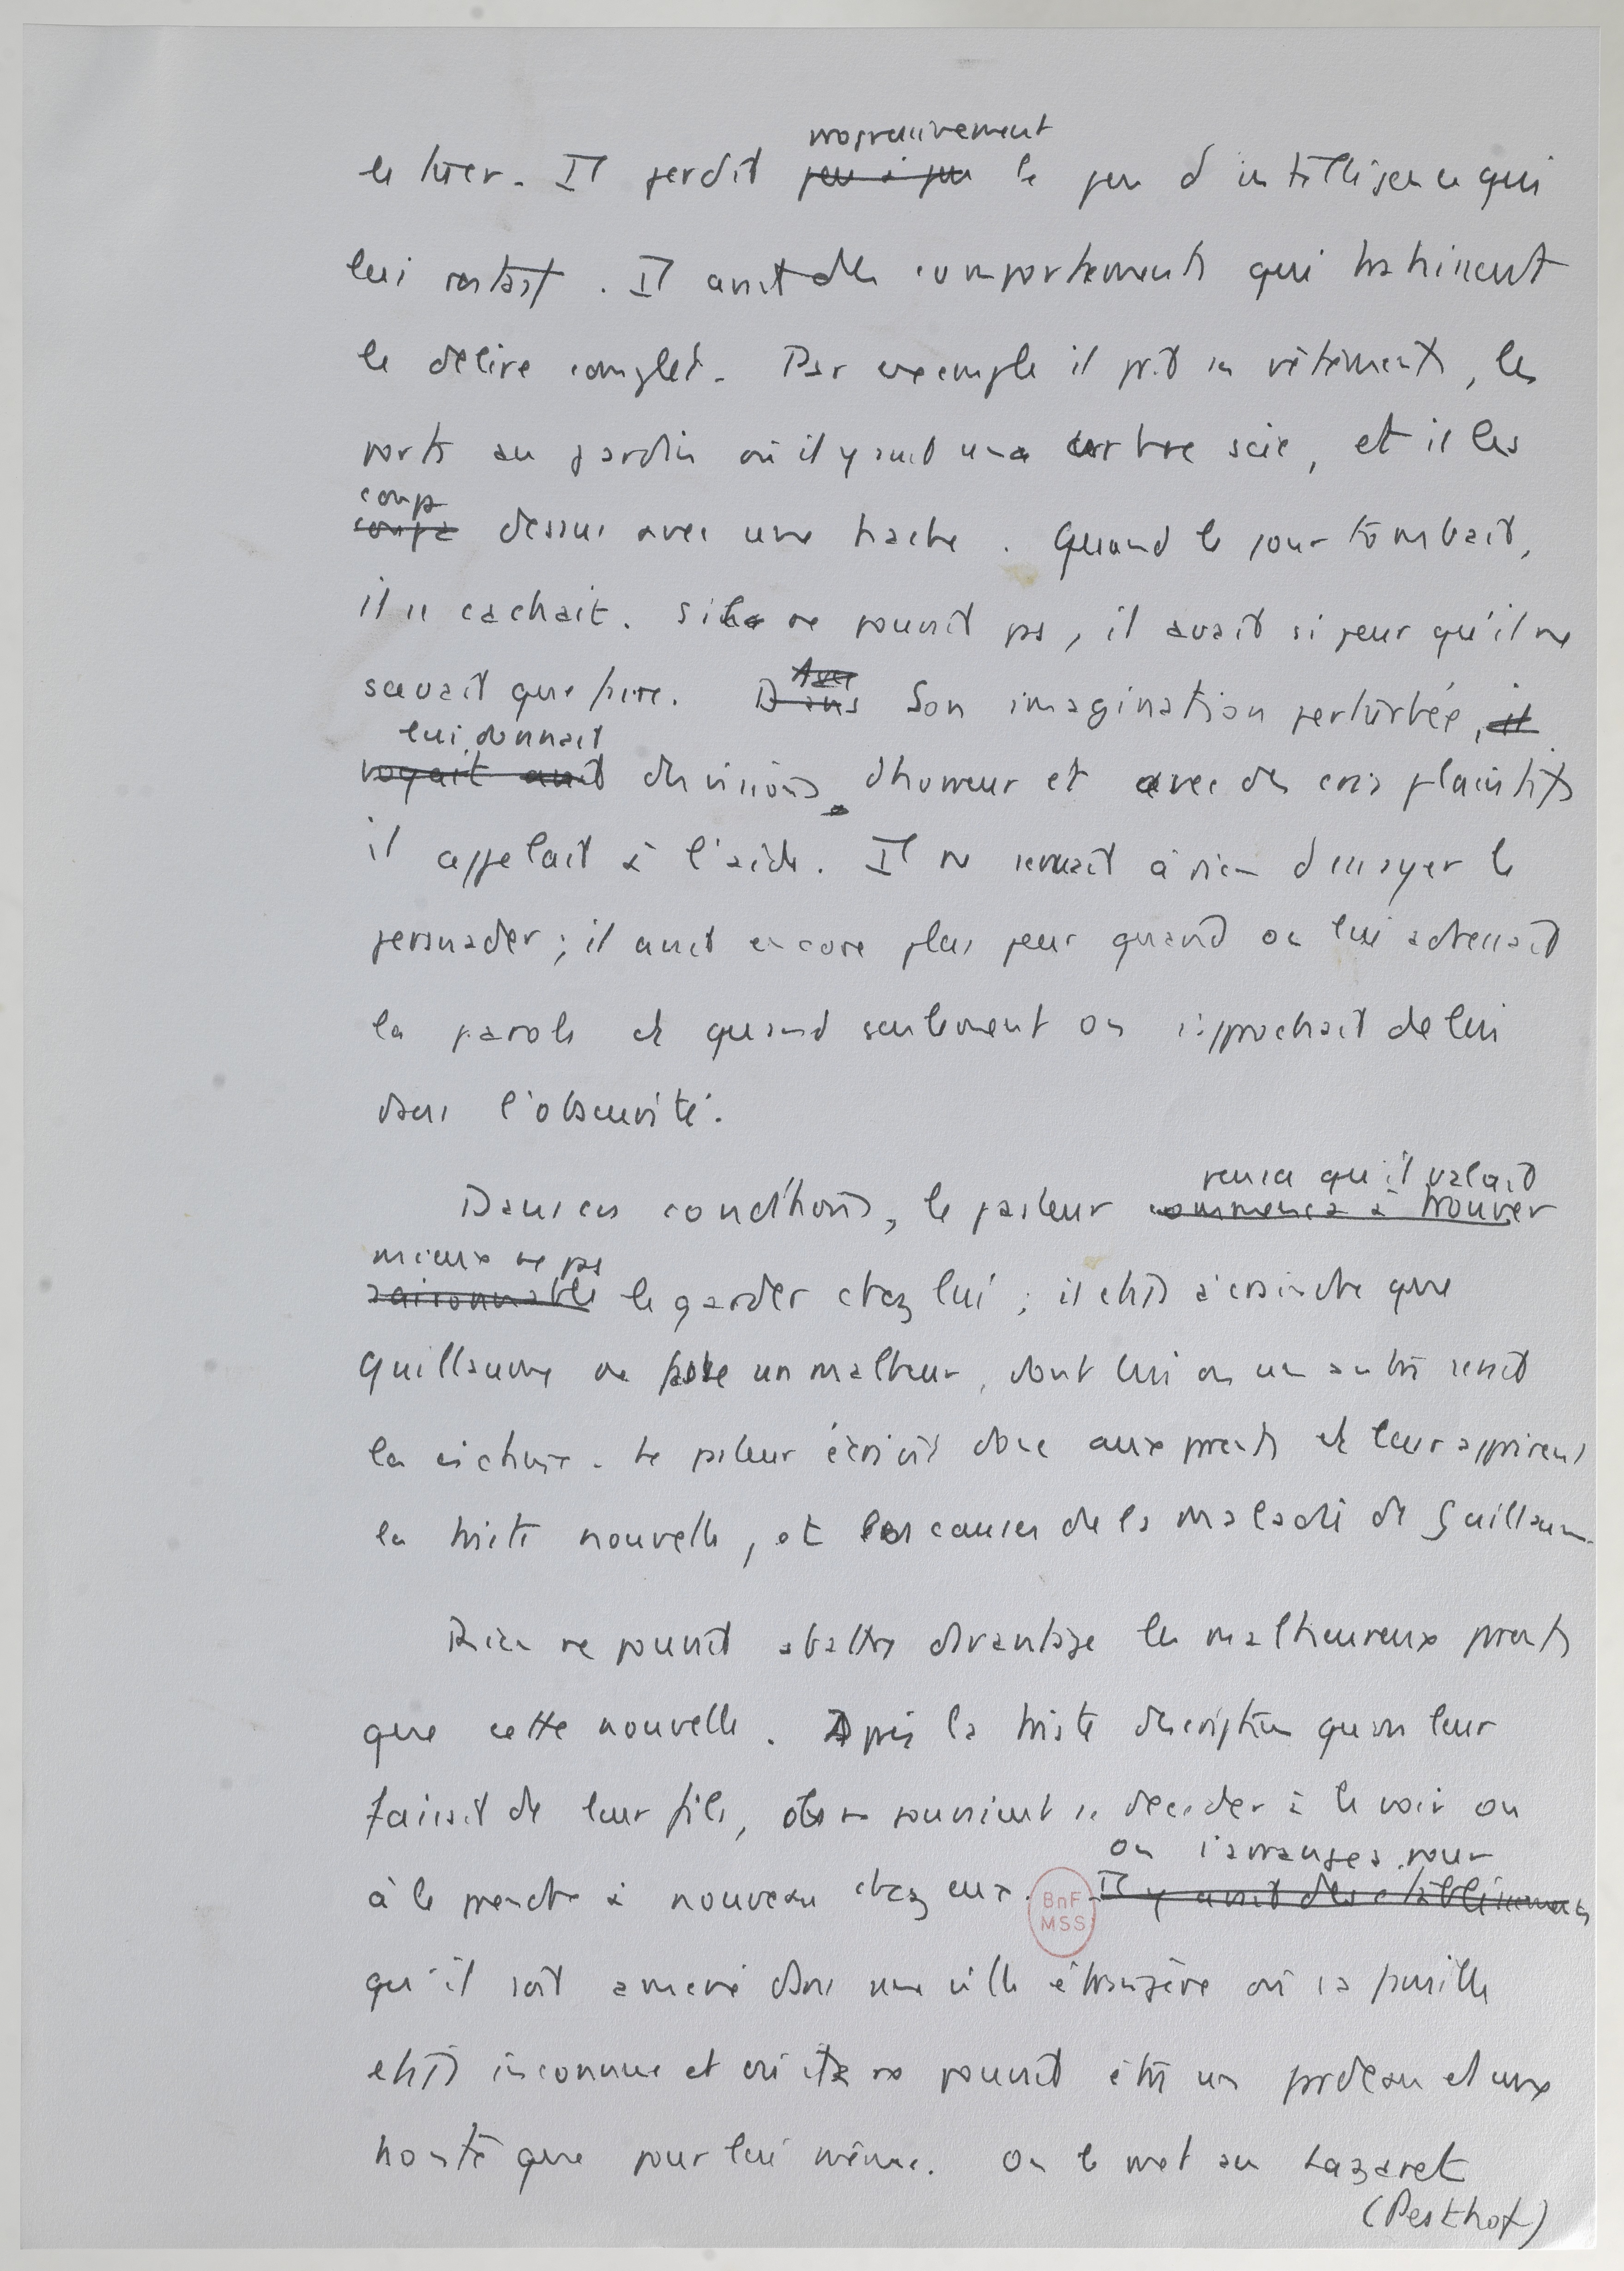 progressivement
Il perdit peu à peu le peu d'intelligence qui
lui restait. Il avait des comportements qui trahissent
le délire complet. Par exemple il prit ses vêtements, les
porta au jardin où il y avait une scie, et il les
coupa
coupa dessus avec une hache. Quand le jour tombait,
il se cachait. S'il ne pouvait pas, il avait si peur qu'il ne
savait que faire. Avec
Dans Son imagination perturbée, il
lui donnait
voyait avait des visions d'horreur et avec des cris plaintifs
il appelait à l'aide. Il ne servait à rien d'essayer le
persuader; il avait encore plus peur quand on lui adressait
la parole et quand seulement on s'approchait de lui
dans l'obscurité.
pensa qu'il valait
Dans ces conditions, le pasteur commença à trouver
mieux ne pas
raisonnable le garder chez lui; il était à craindre que
Guillaume ne fasse un malheur, dont lui ou un autre serait
la victime. Le pasteur écrivit donc aux parents et leur apprirent
la triste nouvelle, et les causes de la maladie de Guillaume.
Rien ne pouvait abattre davantage les malheureux parents
que cette nouvelle. Après la triste description qu'on leur
faisait de leur fils, ils ne pouvaient se décider à le voir ou
on s'arrangea pour
à le prendre à nouveau chez eux. Il y avait des établissements
BnF
MSS
qu'il soit amené dans une ville étrangère où sa famille
était inconnue et où il ne pouvait être un fardeau et une
honte que pour lui même. On le met au Lazaret
(Pesthof)